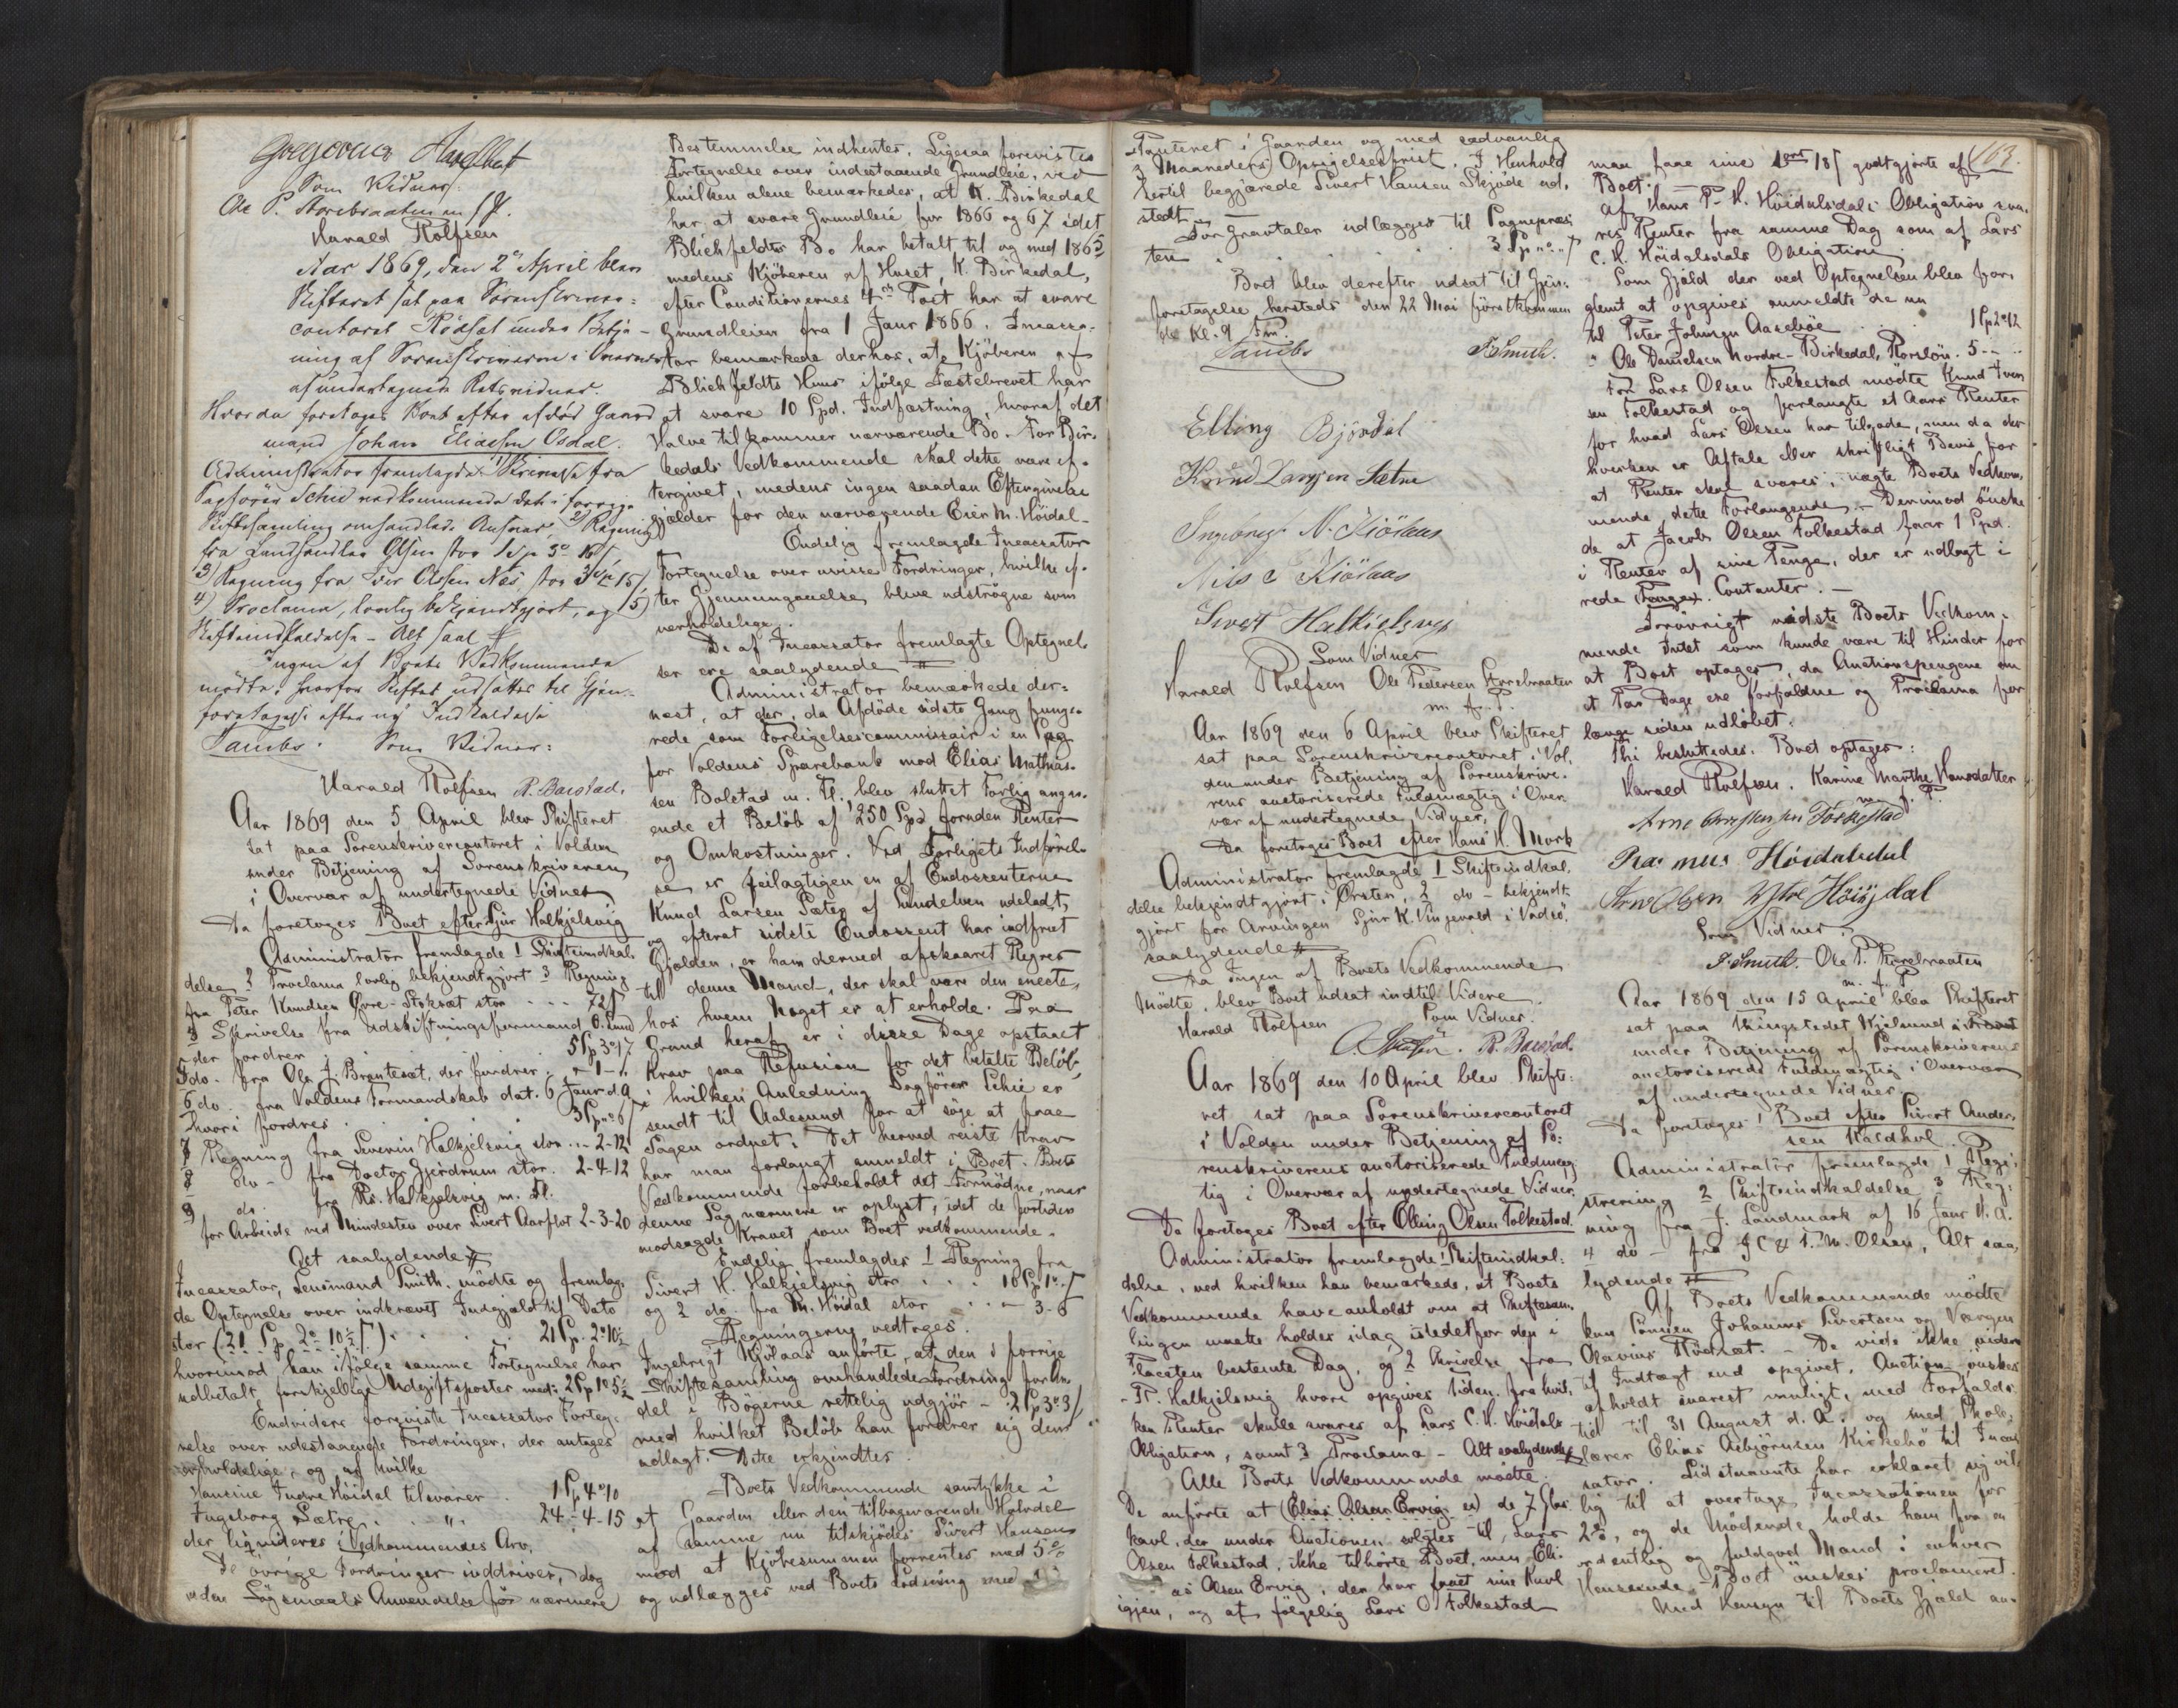 Som Vidner:
Ole P. Storebraaten m f P.
Harald Rolfsen
Aar 1869, den 2den April blev
Skifteret sat paa Sorenskriver-
contoret Rødsæt under Betje-
ning af Sorenskriveren i Overvær
af undertegnede Retsvidner.
Hvorda foretages Boet efter afdød Gaard
mand Johan Eliassen Osdal.
Administrator fremlagde 1) Skrivelse fra
Sagfører Schie vedkommende det i forrige
Skiftesamling omhandlede Ansvar, 2) Regning
fra Landhandler Olsen stor
3) Regning fra Iver Olsen Næs stor
4) Proclama, lovlig bekjendtgjort, og 5)
Skifteindkaldelse - Alt saal #
Ingen af Boets Vedkommende
mødte; hvorfor Skiftet udsættes til Gjen-
foretagelse efter ny Indkaldelse
Jambs. Som Vidner:
Harald Rolfsen R. Barstad.
Aar 1869 den 5 April blev Skifteret
sat paa Sorenskrivercontoret i Volden
under Betjening af Sorenskriveren
i Overvær af undertegnede Vidner
Da foretoges Boet efter Sjur Halkjelsvig
Administrator fremlagde 1 Skifteindkal-
delse 2 Proclama lovlig bekjendtgjort 3 Regning
fra Peter Knudsen Øvre-Stokset stor - - - 72 ſ
4 Skrivelse fra Udskiftningsformand O. Lund
der fordrer 5 Sp 3 " 17
5 do. fra Ole J. Brautesæt, der fordrer. " - 1 - "
6 do. fra Voldens Formandskab dat. 6 Janr d. A.
hvori fordres . . . 3 Sp " " 6 ſ
7 Regning fra Severin Halkjelsvig stor " - 2-12
8 do - fra Doctor Gjørdrum stor. 2-4-12
9 do. fra Rs. Halkjelsvig m. Fl.
for Arbeide ved Mindesten over Sivert Aarflot 2-3-20
Alt saalydende #
Incassator, Lensmand Smith, mødte og fremlag-
de Optegnelse over indkrævet Indgjæld til Dato
stor (21 Sp. 2 " 10½ ſ) . . . 21 Sp. 2 " 10½
hvorimod han ifølge samme Fortegnelse har
udbetalt forskjellige Udgiftsposter med: 2 Sp 1 " 5½
Endvidere foreviste Incassator Forteg-
nelse over udestaaende Fordringer, der antages
erholdelige, og af hvilke
Hansine Indre Høidal tilsvarer . 1 Sp 4 " 10
Ingeborg Sætre . . " . 24 - 4-15
der liqvideres i Vedkommendes Arv,
De øvrige Fordringer inddrives, dog
uden Søgsmaals Anvendelse før nærmere
Bestemmelse indhentes. Ligesaa forevistes
Fortegnelse over indestaaende Grundleie, ved
hvilken alene bemærkedes, at K. Birkedal
har at svare Grundleie for 1866 og 67 idet
Blichfeldts Bo har betalt til og med 1865
medens Kjøberen af Huset, K. Birkedal,
efter Conditionernes 4de Post har at svare
Grundleien fra 1 Janr 1866. Incassa-
tor bemærkede derhos, at Kjøberen af
Blichfeldts Huus ifølge Fæstebrevet har
at svare 10 Spd. Indfæstning, hvoraf det
Halve tilkommer nærværende Bo. For Bir-
kedals Vedkommende skal dette være ef-
tergivet, medens ingen saadan Eftergivelse
gjælder for den nærværende Eier M. Høidal -
Endelig fremlagde Incassator
Fortegnelse over uvisse Fordringer, hvilke ef-
ter Gjennemgaaelse bleve udstrøgne som
uerholdelige.
De af Incassator fremlagte Optegnel-
ser ere saalydende #
Administrator bemærkede der-
næst, at der, da Afdøde sidste Gang funge-
rede som Forligelsescommissair i en Sag
for Voldens Sparebank mod Elias Mathias-
sen Bolstad m. Fl., blev sluttet Forlig angaa-
ende et Beløb af 250 Spd foruden Renter
og Omkostninger. Ved Forligets Indførel-
se er feilagtigen en af Endossenterne
Knud Larsen Sæter af Sundelven udeladt,
og efterat sidste Endossent har indfriet
Gjælden, er ham derved afskaaret Regres
til denne Mand, der skal være den eneste,
hos hvem Noget er at erholde. Paa
Grund heraf er i disse Dage opstaaet
Krav paa Refusion for det betalte Beløb,
i hvilken Anledning Sagfører Schie er
sendt til Aalesund for at søge at faae
Sagen ordnet. Det herved reiste Krav
har man forlangt anmeldt i Boet. Boets
Vedkommende forbeholdt det Fornødne, naar
denne Sag nærmere er oplyst, idet de forøvrigt
modsagde Kravet som Boet vedkommende.
Endelig fremlagdes 1 Regning fra
Sivert H. Halkjelsvig stor . . . 16 Sp 1 " . ſ
og 2 do. fra M. Høidal stor . . . - 3-6
Regningerne vedtoges.
Ingebrigt Kjølaas anførte, at den i forrige
Skiftesamling omhandlede Fordring
del i Bøgerne rettelig udgjør - 2 Sp 3 " 3 ſ
med hvilket Beløb han fordrer sig den
udlagt. Dette erkjendtes.
Boets Vedkommende samtykke i
at Gaarden eller den tilbageværende Halvdel
af samme nu tilskjødes Sivert Hansen
mod at Kjøbesummen forrentes med 5 %
og udlægges ved Boets Slutning med
Panteret i Gaarden og med sædvanlig
3 Maaneders Opsigelsesfrist. I Henhold
hertil begjærede Sivert Hansen Skjøde ud-
stedt. -
For Gravtaler udlægges til Sognepræs-
ten . . . 3 Sp " " " ſ
Boet blev derefter udsat til Gjen-
foretagelse hersteds den 22 Mai førstkommen-
de Kl. 9 Fm.
Jambs J. Smith.
Elling Bjørdal
Knud Larsen Sætre
Ingebrigt N. Kiølaas
Nils I Kiølaas
Sivert Halkielsvig
Som Vidner
Harald Rolfsen Ole Pedersen Storebraaten
m. f. P.
Aar 1869 den 6 April blev Skifteret
sat paa Sorenskrivercontoret i Vol-
den under Betjening af Sorenskrive-
rens auctoriserede Fuldmægtig i Over-
vær af undertegnede Vidner,
Da foretoges Boet efter Hans H. Mork
Administrator fremlagde 1 Skifteindkal-
delse bekjendtgjort i Ørsten, 2 do - bekjendt-
gjort for Arvingen Sjur K. Vingevold i Vadsø.
saalydende #
Da Ingen af Boets Vedkommende
Mødte, blev Boet udsat indtil Videre.
Harald Rolfsen Som Vidner.
R. Barstad.
Aar 1869 den 10 April blev Skifte-
ret sat paa Sorenskrivercontoret
i Volden under Betjening af So-
renskriverens auctoriserede Fuldmæg-
tig i Overvær af undertegnede Vidner,
Da foretoges Boet efter Elling Olsen Folkestad.
Administrator fremlagde 1 Skifteindkal-
delse, ved hvilken han bemærkede, at Boets
Vedkommende have anholdt om at Skiftesam-
lingen maatte holdes idag istedetfor den i
Placaten bestemte Dag, og 2 Skrivelse fra
P. Halkjelsvig hvori opgives Tiden, fra hvil-
ken Renter skulle svares af Lars C. H. Høidals
Obligation, samt 3 Proclama - Alt saalydende #
Alle Boets Vedkommende mødte.
De anførte at (Elias Olsen Ervig er) de 7
Kavl, der under Auctionen solgtes til Lars
Olsen Folkestad, ikke tilhørte Boet, men Eli-
as Olsen Ervig, der har faaet sine Kavl
igjen, og at følgelig Lars O Folkestad
163.
maa faae sine 1 ort 18 ſ godtgjorte af
Boet. -
Af Hans P. H. Høidalsdals Obligation sva-
res Renter fra samme Dag som af Lars
C. H. Høidalsdals Obligation
Som Gjæld der ved Optegnelsen blev for-
glemt at opgives anmeldte de nu
til Peter Johnsen Aasebøe . . 1 Sp 2 " 12
" Ole Danielsen Nordre-Birkedal, Rorsløn. 5 - " - "
For Lars Olsen Folkestad mødte Knud Iver-
sen Folkestad og forlangte et Aars Renter
for hvad Lars Olsen har tilgode, men da der
hverken er Aftale eller skriftligt Bevis for
at Renter skal svares, nægte Boets Vedkom-
mende dette Forlangende. - Derimod ønske
de at Jacob Olsen Folkestad faar 1 Spd.
i Renter af sine Penge, der er udlagt i
rede (Penge). Contanter. -
Iøvrigt vidste Boets Vedkom-
mende Intet som kunde være til Hinder for
at Boet optages, da Auctionspengene om
et Par Dage ere forfaldne og Proclama for
længe siden udløbet.
Thi besluttedes. Boet optages:
Harald Rolfsen. Karine Marthe Hansdatter
m. f. P.
Rasmus Høidalsdal
Arne Olsen Ytre Høisdal
Som Vidner:
J. Smith. Ole P. Storebraaten
m. f. P.
Aar 1869 den 15 April blev Skifteret
sat paa Thingstedet
under Betjening af Sorenskriverens
auctoriserede Fuldmægtig i Overvær
af undertegnede Vidner
Da foretoges 1 Boet efter Sivert Ander-
sen Kaldhol.
Administrator fremlagde 1 Regi-
strering 2 Skifteindkaldelse, 3 Reg-
ning fra J. Landmark af 16 Janr d. A.
4 do - fra J C & T. M. Olsen, Alt saa-
lydende #
Af Boets Vedkommende mødte
kun Sønnen Johannes Sivertsen og Værgen
Olavius Rødsæt. - De vide ikke videre
af Indtægt end opgivet. Auction ønskes
afholdt snarest muligt, med Forfalds-
tid til 31 August d. A. og med Skole-
lærer Elias Asbjørnsen Kirkebø til Incas-
sator. Sidstnævnte har erklæret sig vil-
lig til at overtage Incassationen for
2 %, og de Mødende holde ham for en
ordentlig og fuldgod Mand i enhver
Henseende. Boet ønskes proclameret.
Med Hensyn til Boets Gjæld an-